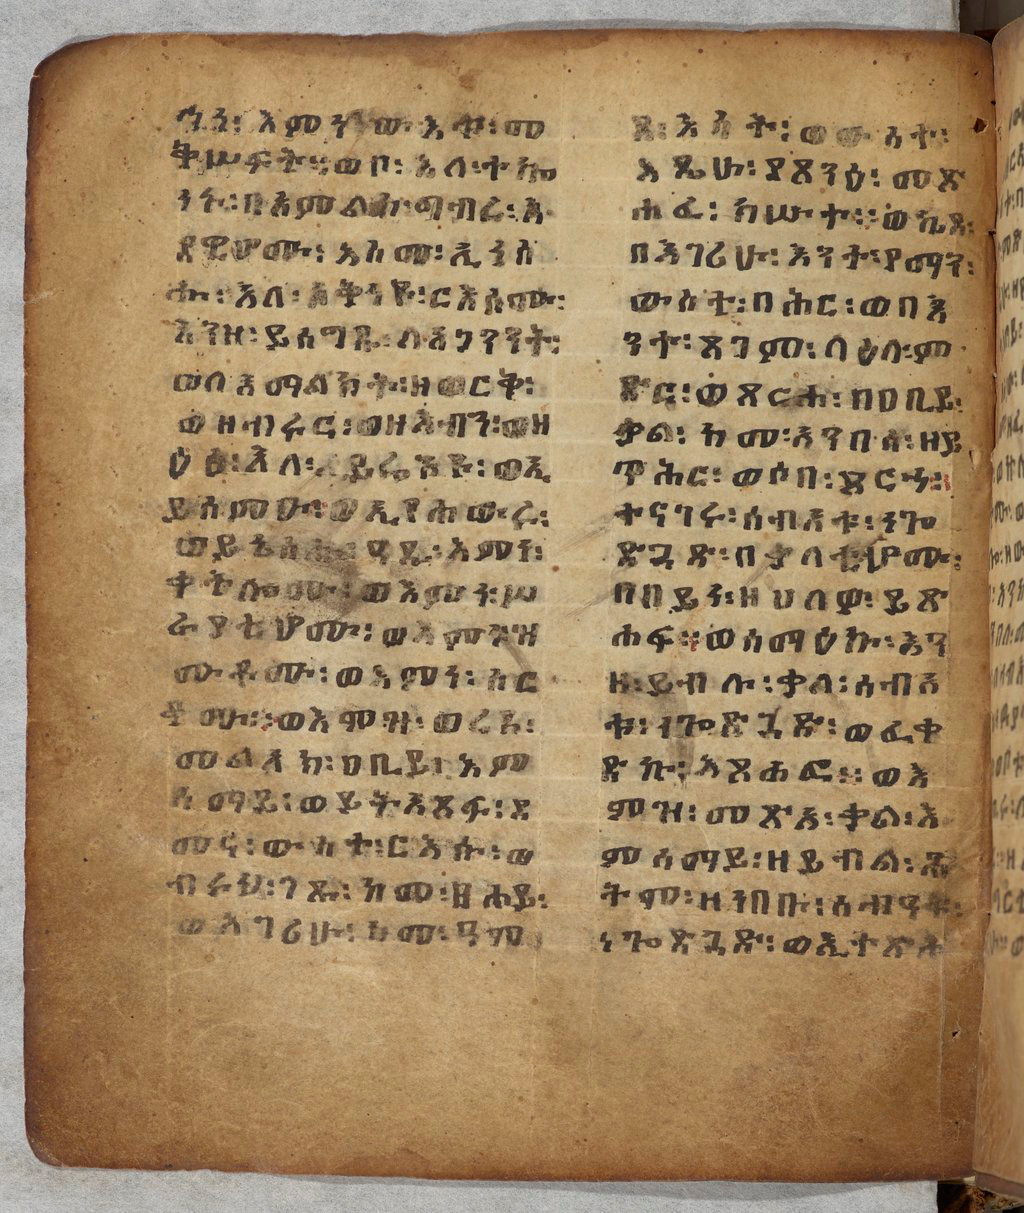 ኅን፡ እምንዋ፡ እቶ፡ መ
ቅሠፍት፡ ወቦ፡ እለ፡ ተኰ
ነኑ፡ በእምልኮ፡ ግብረ፡ እ
ደዊሆሙ፡ እስመ፡ ኢነስ
ሑ፡ እለ፡ አቅነዩ፡ ርእሶሙ፡
እንዘ፡ ይሰግዱ፡ ለአጋንንት፡
ወለአማልክት፡ ዘወርቅ፡
ወዘብሩር፡ ወዘእብን፡ ወዘ
ዕፅ፡ እለ፡ ኢይሬእዩ፡ ወኢ
ይሰምዑ፡ ወኢየሐውሩ፡
ወይቤስሑ፡ ዓዲ፡ እምነ፡
ቀትሎሙ፡ ወእምነ፡ ሥ
ራያቲሆሙ፡ ወእምነ፡ ዝ
ሙቶሙ፡ ወእምነ፡ ስር
ቆሙ፡ ወእምዝ፡ ወረደ፡
መልአክ፡ ዐቢይ፡ እም
ሰማይ፡ ወይትአጸፍ፡ ደ
መና፡ ውስተ፡ ርእሱ፡ ወ
ብሩህ፡ ገጹ፡ ከመ፡ ፀሐይ፡
ወእገሪሁ፡ ከመ፡ ዓም
ደ፡ እሳት፡ ወውስተ፡
እዴሁ፡ የጸንዕ፡ መጽ
ሐፈ፡ ክሡተ፡ ወኬደ፡
በእገሪሁ፡ እንተ፡ የማን፡
ውስተ፡ ባሕር፡ ወበእ
ንተ፡ ጸጋም፡ ላዕለ፡ ም
ድር፡ ወጸርሐ፡ በዐቢይ፡
ቃል፡ ከመ፡ አንበሳ፡ ዘይ
ጥሕር፡ ወሶበ፡ ጸርኀ፡
ተናገሩ፡ ሰብአቱ፡ ነጐ
ድጓድ፡ በቃላቲሆሙ፡
በበይነ፡ ዘሀለዎ፡ ይጽ
ሐፍ፡ ወሰማዕኩ፡ እን
ዘ፡ ይብሉ፡ ቃለ፡ ሰብአ
ቱ፡ ነጐድጓድ፡ ወፈቀ
ድኩ፡ እጸሐፎ፡ ወእ
ምዝ፡ መጽአ፡ ቃል፡ እ
ምሰማይ፡ ዘይብል፡ ኅ
ትም፡ ዘነበቡ፡ ሰብዓቱ፡
ነጐድጓድ፡ ወኢተጽሐ